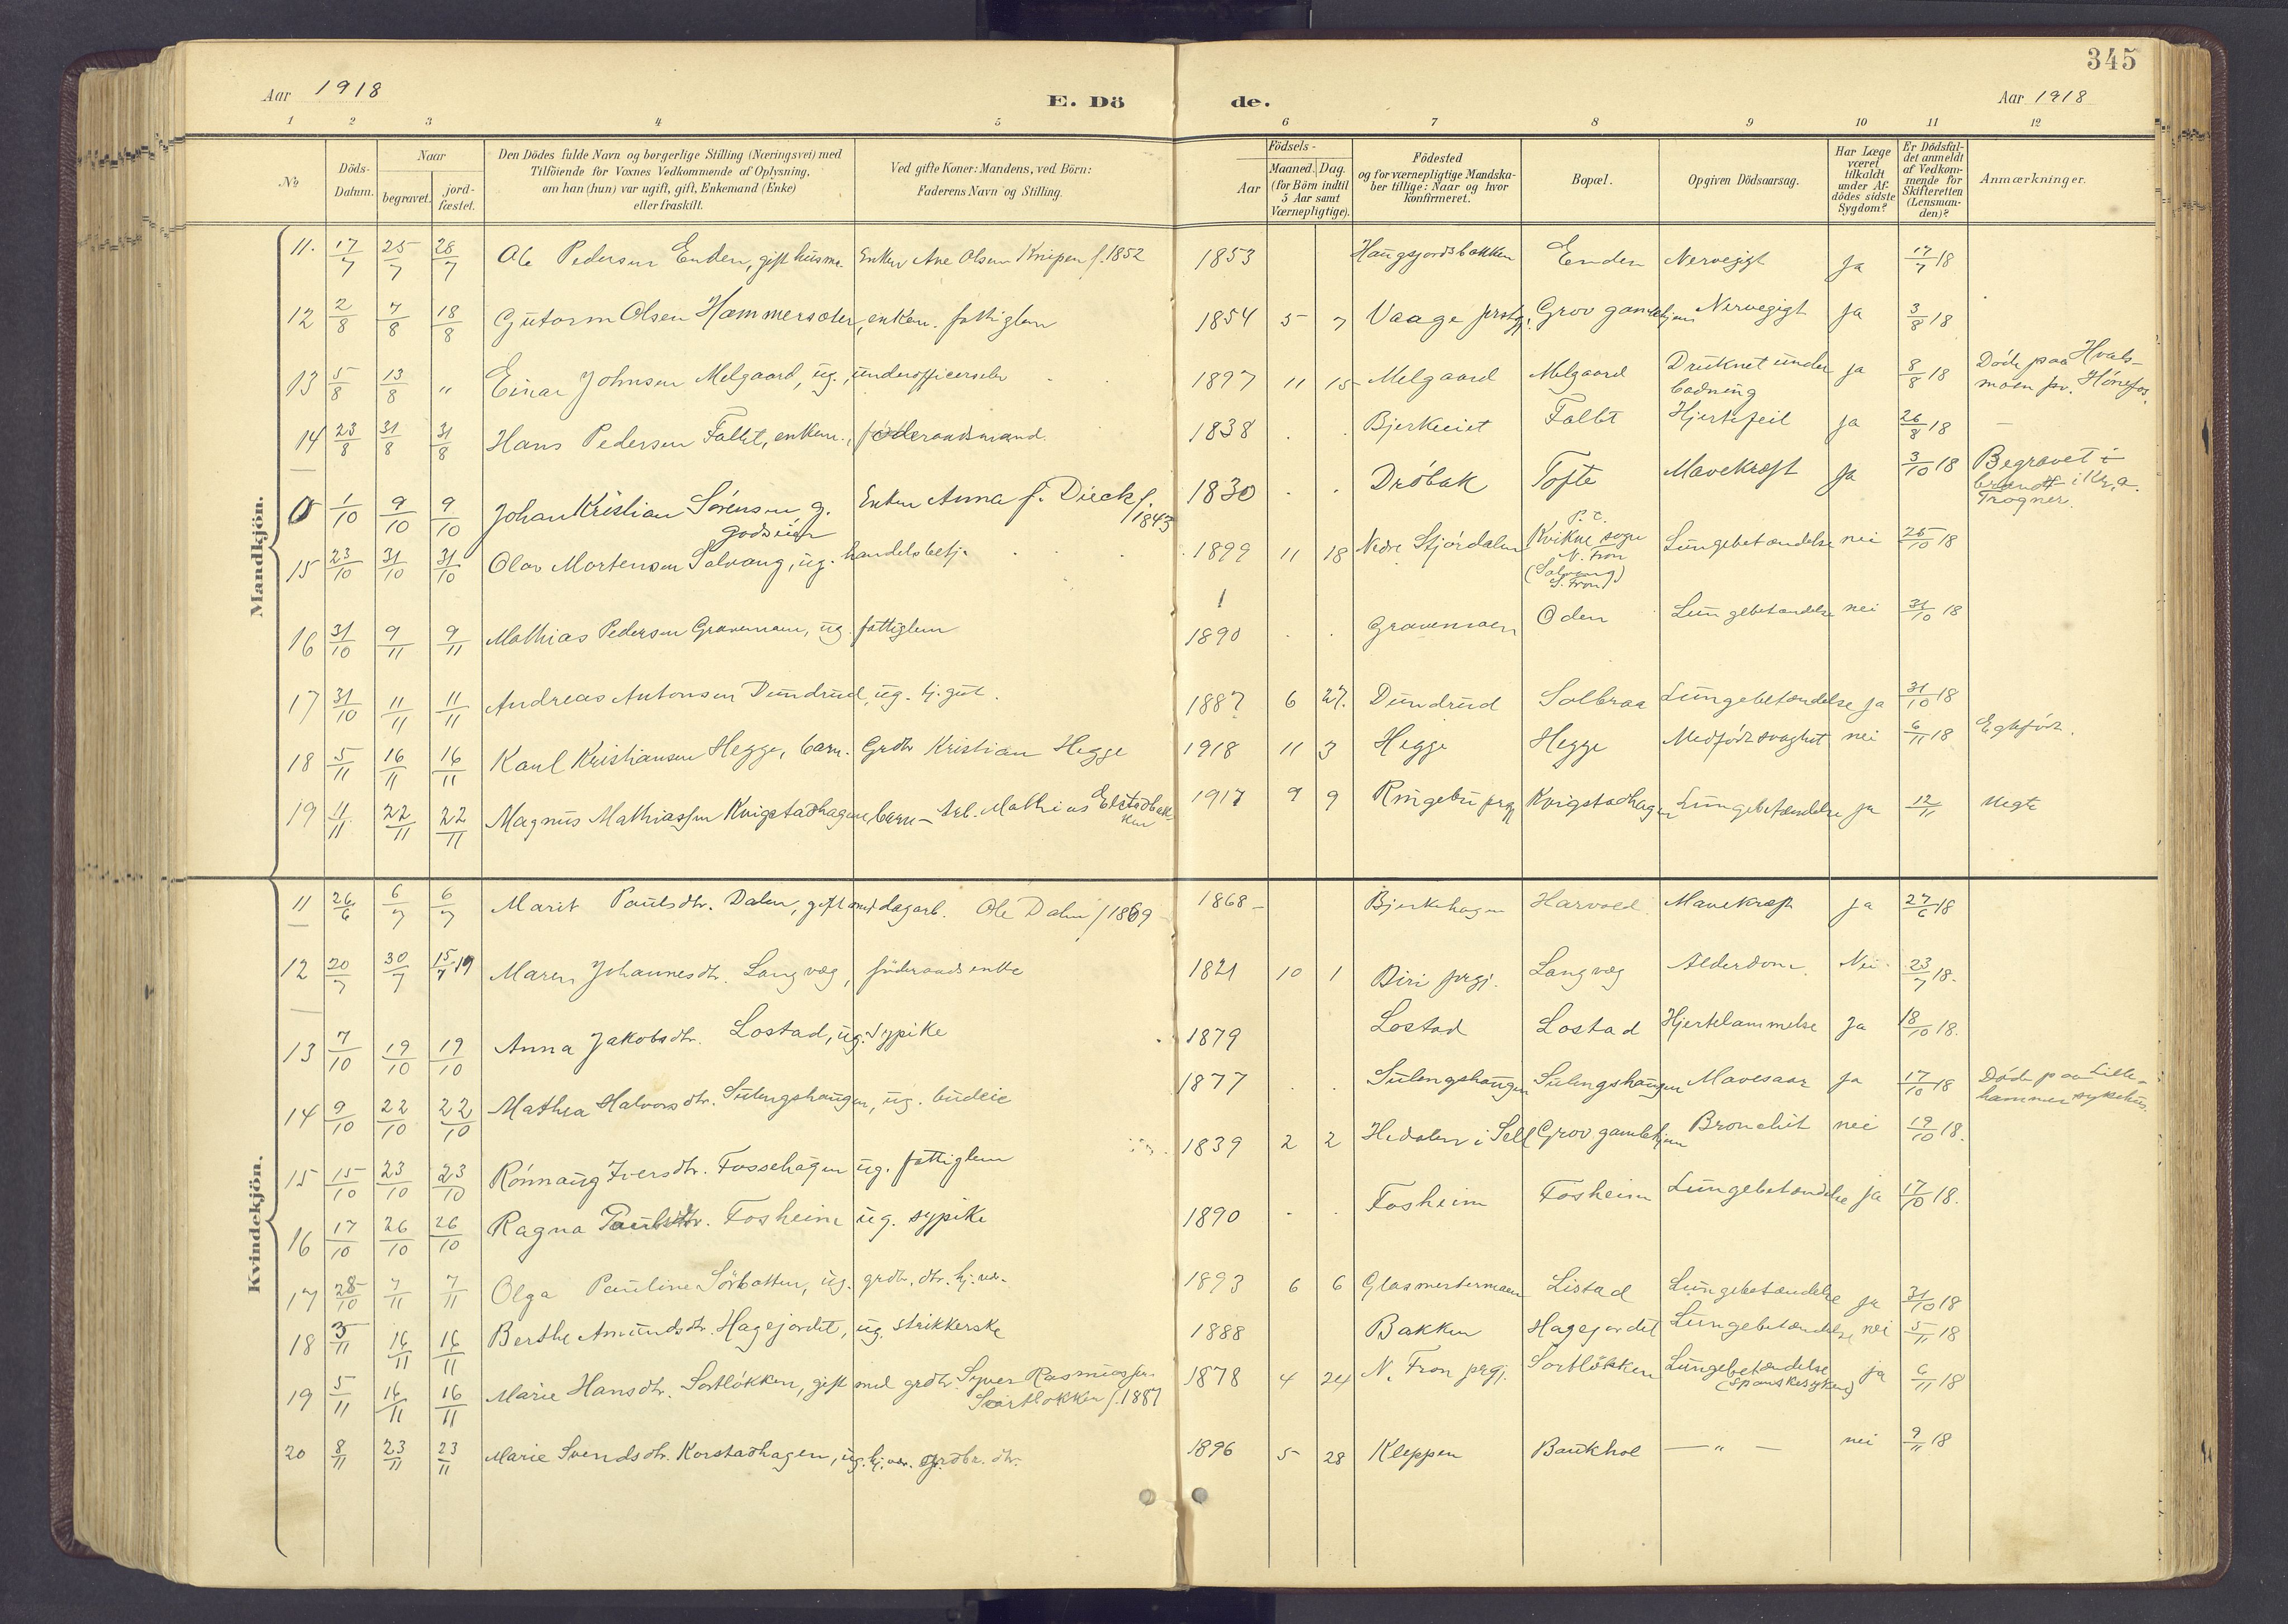 345
Aar 1918 E. Dö de. Aar 1918
1 2 3 4 5 6 7 8 9 10 11 12
№ Döds-Datum. Naar begravet. jord-fæstet. Den Dödes fulde Navn og borgerlige Stilling (Næringsvei) med Tilföiende for Voxnes Vedkommende af Oplysning, om han (hun) var ugift, gift, Enkemand (Enke) eller fraskilt. Ved gifte Koner: Mandens, ved Börn: Faderens Navn og Stilling. Födsels- Aar Maaned. Dag. (for Börn indtil 5 Aar samt Værnepligtige). Födested og for værnepligtige Mandskaber tillige: Naar og hvor konfirmeret. Bopæl. Opgiven Dödsaarsag. Har Læge været tilkaldt under Afdödes sidste Sygdom? Er Dödsfaldet anmeldt af Vedkommende for Skifteretten (Lensmanden)? Anmærkninger.
Mandkjön.
11. 17/7 25/7 28/7 Ole Pedersen Enden, gift husm. Enken Ane Olsen Knipen f. 1852 1853 Haugsjordsbakken Enden Nervegigt Ja 17/7 18
12 2/8 7/8 18/8 Gutorm Olsen Hammersæter, enkem. fattiglem 1854 5 7 Vaage prstgj. Grov gamlehjem Nervegigt Ja 3/8 18
13 5/8 13/8 " Einar Johnsen Melgaard, ug., underofficerselev 1897 11 15 Melgaard Melgaard Druknet under badning ja 8/8 18 Døde paa Hvalsmoen pr. Hønefos.
14 23/8 31/8 31/8 Hans Pedersen Fallet, enkem., föderaadsmand. 1838 Bjerkeiet Fallet Hjertefeil ja 26/8 18
0 1/10 9/10 9/10 Johan Kristian Sörensen g. godseier Enken Anna f. Dieck f. 1843 1830 Dröbak Tofte Mavekræft Ja 3/10 18 Begravet i Kr.a. Frogner.
15 23/10 31/10 31/10 Olav Mortensen Solvang, ug. handelsbetj. 1899 11 18 Nedre Stjördalen P.t. Kvikne sogn N. Fron (Solvang) S. Fron) Lungebetændelse nei 25/10 18
16 31/10 9/11 9/11 Mathias Pedersen Gravemoen, ug. fattiglem 1890 Gravemoen Oden Lungebetændelse nei 31/10 18
17 31/10 11/11 11/11 Andreas Antonsen Dundrud, ug. tj.gut. 1887 6 27. Dundrud Solbraa Lungebetændelse ja 31/10 18
18 5/11 16/11 16/11 Karl Kristiansen Hegge, barn. Grdbr Kristian Hegge 1918 11 3 Hegge Hegge Medfödt svaghet nei 6/11 18 Egtefödt.
19 11/11 22/11 22/11 Magnus Mathiassen Kvigstadhagen barn – Arb. Mathias Elstadbakken 1917 9 9 Ringebu prgj Kvigstadhagen Lungebetændelse ja 12/11 Uegte
Kvindekjön.
11 26/6 6/7 6/7 Marit Paulsdtr. Dalen, gift med dagarb. Ole Dalen f 1869 1868 Bjerkehagen Harvoll Mavekræft ja 27/6 18
12 20/7 30/7 15/4 19 Maren Johannesdtr. Langvæg, föderaadsenke 1821 10 1 Biri prgj. Langvæg Alderdom. Nei. 23/7 18.
13 7/10 19/10 19/10 Anna Jakobsdtr. Lostad, ug. Sypike 1879 Lostad Lostad Hjertelammelse Ja 18/10 18.
14 9/10 22/10 22/10 Mathea Halvorsdtr. Sulengshaugen, ug. budeie 1877 Sulengshaugen Sulengshaugen Mavesaar ja 17/10 18 Døde paa Lillehammer sykehus.
15 15/10 23/10 23/10 Rönnaug Iversdtr. Fossehagen ug. fattiglem 1839 2 2 Hedalen i Sell Grov gamlehjem Bronchit nei 19/10 18.
16 17/10 26/10 26/10 Ragna Paulsdtr. Fosheim ug. sypike 1890 Fosheim Fosheim Lungebetændelse ja 17/10 18.
17 28/10 7/11 7/11 Olga Pauline Sörbotten, ug. grdbr. dtr. hj.vær. 1893 6 6 Glasmestermoen Listad Lungebetændelse ja 31/10 18
18 3/11 16/11 16/11 Berthe Amundsdtr. Hagejordet, ug. strikkerske 1888 Bakken Hagejordet Lungebetændelse nei 5/11 18
19 5/11 16/11 16/11 Marie Hansdtr. Sortlökken, gift med grdbr. Syver Rasmussen Svartløkken f. 1887 1878 4 24 N. Fron prgj. Sortlökken Lungebetændelse (spanskesyken) ja 6/11 18
20 8/11 23/11 23/11 Marie Svendsdtr. Korstadhagen, ug. hj.vær. grdbr. dtr. 1896 5 28 Kleppen Baukhol — " — nei 9/11 18